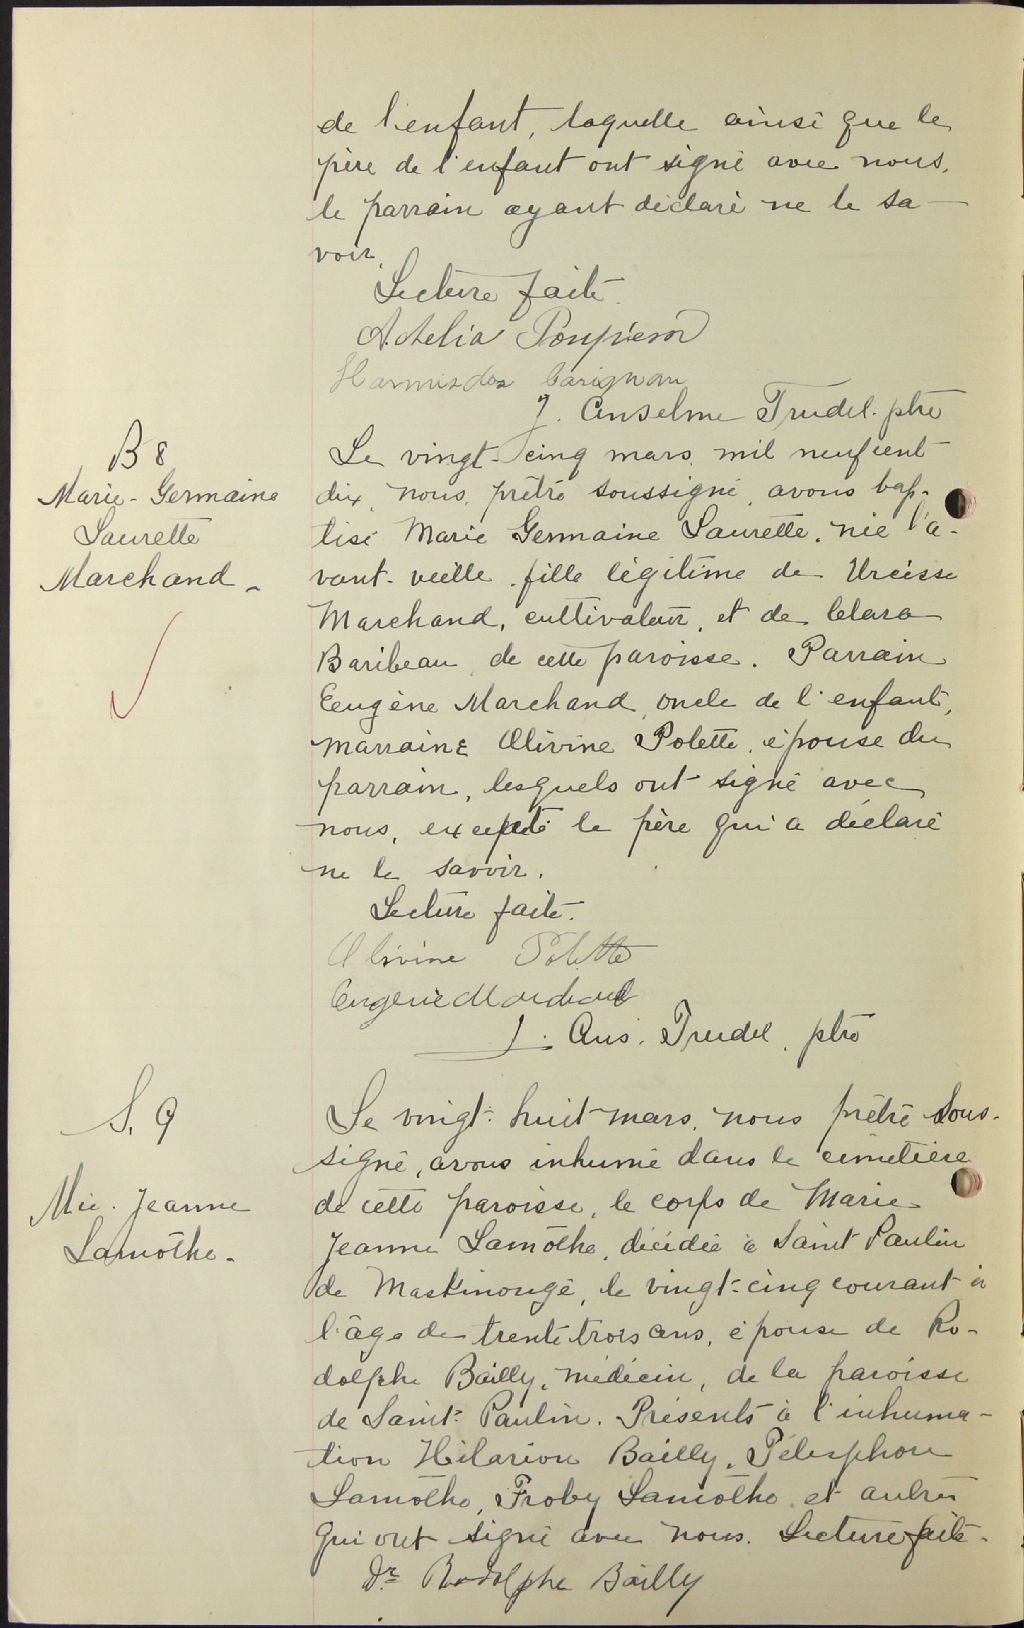 de l'enfant, laquelle ainsi que le
père de l'enfant ont signé avec nous,
le parrain ayant déclaré ne le sa-
voir.
Lecture faite.
Hormisdas Carignan
J. Anselme Trudel ptre
B 8
Marie-Germaine
Laurette
Marchand
Le vingt-cinq mars mil neuf cent
dix, nous, prêtre soussigné, avons bap-
tisé Marie Germaine Laurette, née l'a-
vant-veille, fille légitime de Urcisse
Marchand, cultivateur, et de Clara
Baribeau, de cette paroisse. Parrain
Eugène Marchand, oncle de l'enfant,
marraine Olivine Polette, épouse du
parrain, lesquels ont signé avec
nous, excepté le père qui a déclaré
ne le savoir.
Lecture faite.
Olivine Polette
Eugène Marchand
J. Ans. Trudel, ptre
S. 9
Mie. Jeanne
Lamothe
Le vingt-huit mars, nous prêtre sous-
signé, avons inhumé dans le cimetière
de cette paroisse, le corps de Marie
Jeanne Lamothe, décédée à Saint Paulin
de Maskinongé, le vingt-cinq courant à
l'âge de trente trois ans, épouse de Ro-
dolphe Bailly, médecin, de la paroisse
de Saint-Paulin. Présents à l'inhuma-
tion Hilarion Bailly, Télesphore
Lamothe, Froby Lamothe et autres
qui ont signé avec nous. Lecture faite.
Dr Rodolphe Bailly